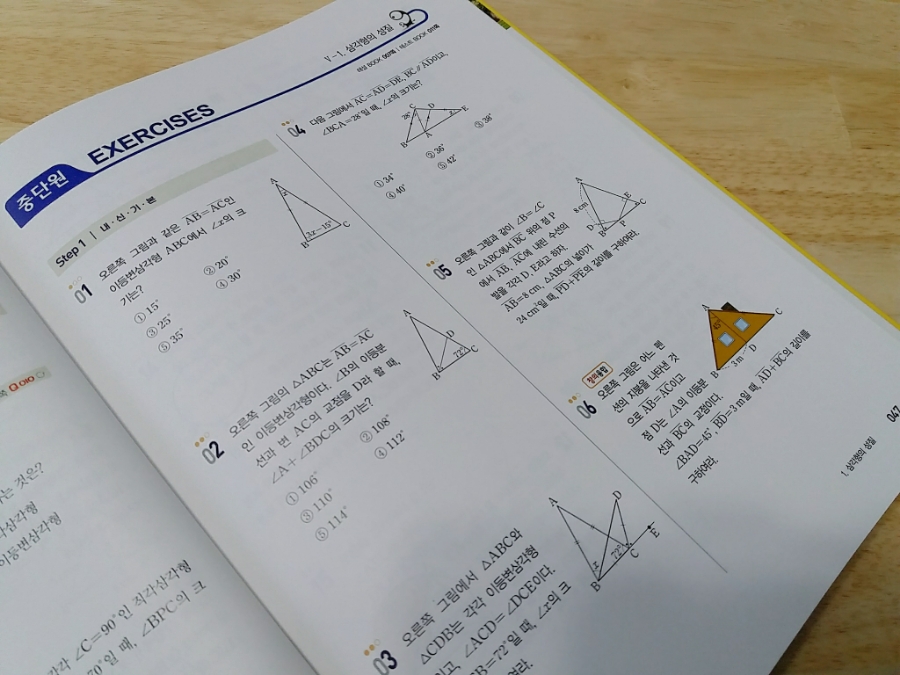 V-1. 삼각형의 성질
중단원
EXERCISES
Step 1 | 내·신·기·본
01
오른쪽 그림과 같은 AB=AC인
이등변삼각형 ABC에서 ∠x의 크
기는?
① 15° ② 20°
③ 25° ④ 30°
⑤ 35°
A
3x-15°
B C
02
오른쪽 그림의 △ABC는 AB=AC
인 이등변삼각형이다. ∠B의 이등분
선과 변 AC의 교점을 D라 할 때,
∠A+∠BDC의 크기는?
① 106° ② 108°
③ 110° ④ 112°
⑤ 114°
A
D
72°
B C
03
오른쪽 그림에서 △ABC와
△CDB는 각각 이등변삼각형
이고, ∠ACD=∠DCE이다.
B=72°일 때, ∠x의 크
여라.
A D
72°
x
B C E
04
다음 그림에서 AC=AD=DE, BC∥AD이고,
∠BCA=28°일 때, ∠x의 크기는?
C D E
28° x
B A
① 34° ② 36° ③ 38°
④ 40° ⑤ 42°
05
오른쪽 그림과 같이 ∠B=∠C
인 △ABC에서 BC 위의 점 P
에서 AB, AC에 내린 수선의
발을 각각 D, E라고 하자.
AB=8 cm, △ABC의 넓이가
24 cm²일 때, PD+PE의 길이를 구하여라.
A
8 cm
E
D
B P C
창의융합
06
오른쪽 그림은 어느 펜
션의 지붕을 나타낸 것
으로 AB=AC이고
점 D는 ∠A의 이등분
선과 BC의 교점이다.
∠BAD=45°, BD=3 m일 때, AD+BC의 길이를
구하여라.
A
45°
B 3 m D C
1. 삼각형의 성질
047
는 것은?
각삼각형
이등변삼각형
각각 ∠C=90°인 직각삼각형
70°일 때, ∠BPC의 크